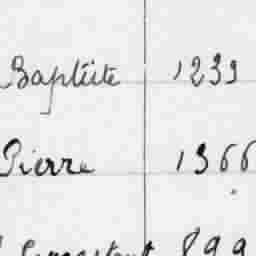 Baptiste 1239
Pierre 1366
899